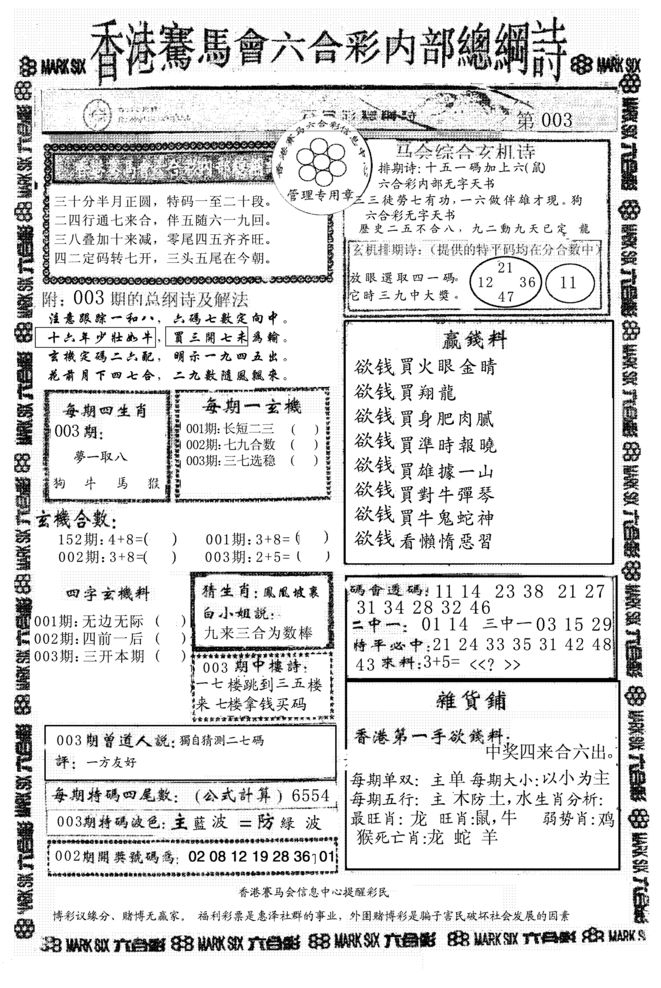 香港騫馬會六合彩内部總綱詩
MARK SIX
MARK SIX
第 003
香港赛马六合彩信息中心
管理专用章
三十分半月正圆，特码一至二十段。
二四行通七来合，伴五随六一九回。
三八叠加十来减，零尾四五齐齐旺。
四二定码转七开，三头五尾在今朝。
马会综合玄机诗
排期诗：十五一码加上六(鼠)
六合彩内部无字天书
三三徒劳七有功,一六做伴雄才现。狗
六合彩无字天书
歷史二五不合八，九二動九天已定 龍
玄机排期诗：(提供的特平码均在分合数中)
放眼選取四一碼。
它時三九中大獎。
21
12 36
47
11
附：003 期的总纲诗及解法
注意跟踪一和八，六碼七數定向中。
十六年少壯如牛，買三開七未為輸。
玄機定碼二六配，明示一九四五出。
花前月下四七合，二九數随風飄來。
每期四生肖
003 期：
夢一取八
狗 牛 馬 猴
每期一玄機
001期：长短二三 ( )
002期：七九合数 ( )
003期：三七选稳 ( )
玄機合數：
152期：4+8=( ) 001期：3+8=( )
002期：3+8=( ) 003期：2+5=( )
四字玄機料
001期：无边无际 ( )
002期：四前一后 ( )
003期：三开本期 ( )
猜生肖：鳳凰坡裏
白小姐説：
九来三合为数棒
003 期中樓詩：
一七楼跳到三五楼
来 七楼拿钱买码
003期曾道人説：獨自猜测二七碼
評：一方友好
每期特碼四尾數：(公式計算) 6554
003期特碼波色：主 藍 波 = 防 緑 波
002期開獎號碼悉：02 08 12 19 28 36 01
贏錢料
欲钱買火眼金晴
欲钱買翔龍
欲钱買身肥肉腻
欲钱買準時報曉
欲钱買雄據一山
欲钱買對牛彈琴
欲钱買牛鬼蛇神
欲钱看懶惰惡習
碼會透碼：11 14 23 38 21 27
31 34 28 32 46
二中一：01 14 三中一 03 15 29
特平必中：21 24 33 35 31 42 48
43 來料：3+5= <<? >>
雜貨鋪
香港第一手欲錢料：
中奖四来合六出。
每期单双：主单 每期大小：以小为主
每期五行：主 木防土,水生肖分析：
最旺肖：龙 旺肖：鼠,牛 弱势肖：鸡
猴死亡肖：龙 蛇 羊
香港赛马会信息中心提醒彩民
博彩议缘分、赌博无赢家， 福利彩票是惠泽社群的事业，外围赌博彩是骗子害民破坏社会发展的因素
MARK SIX 六合彩 MARK SIX 六合彩 MARK SIX 六合彩 MARK SIX 六合彩 MARK S